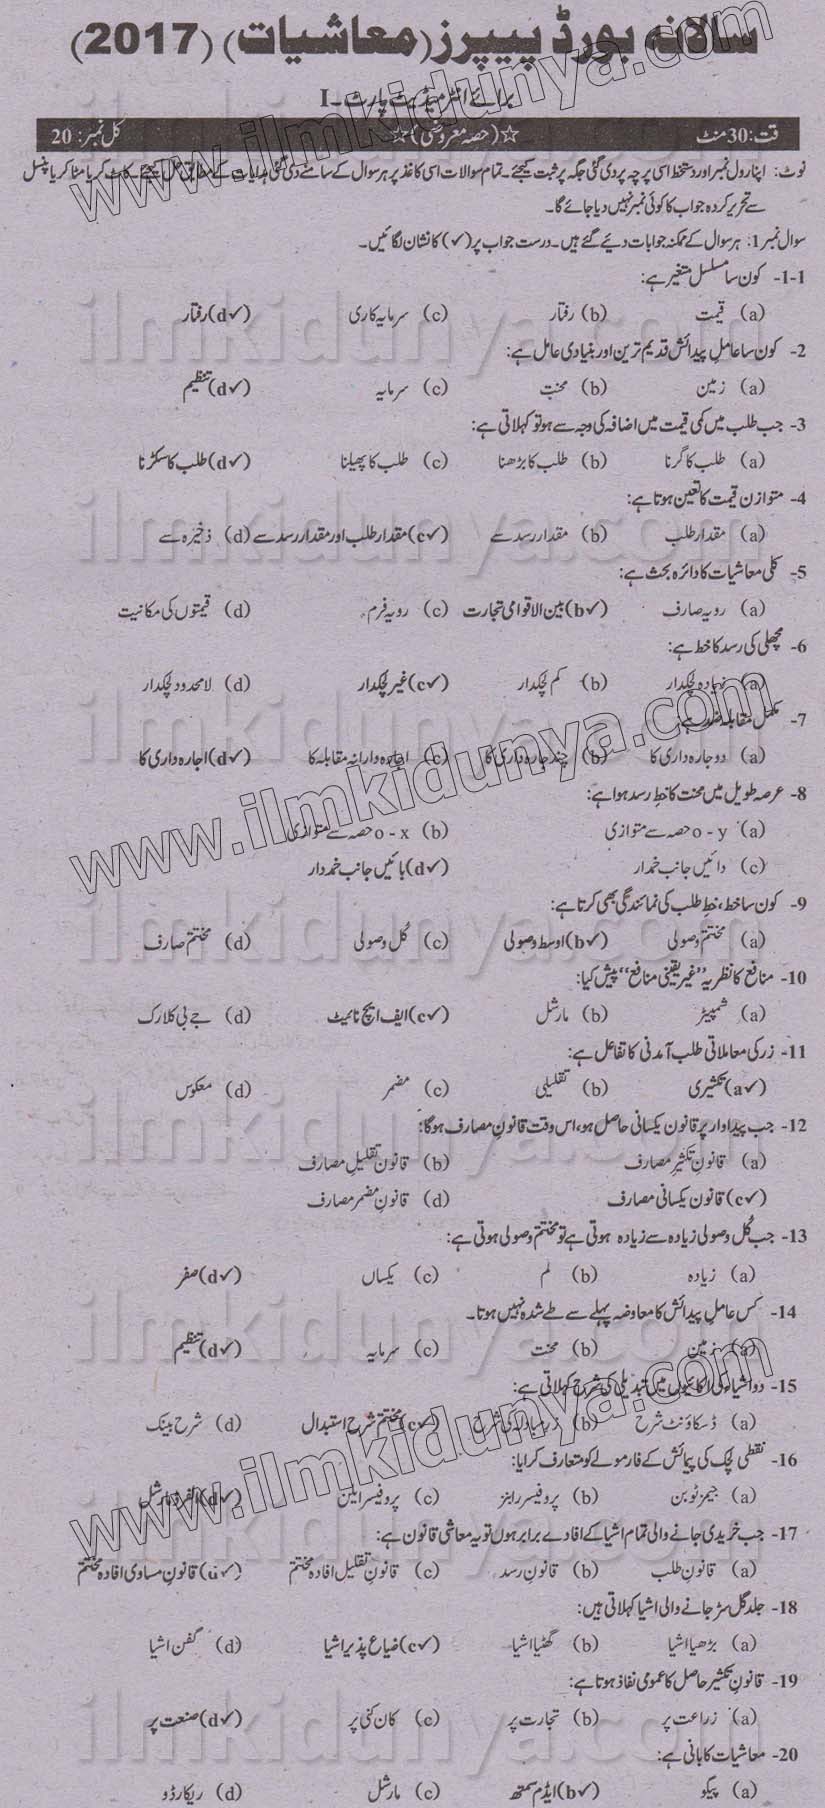 سالانہ بورڈ پیپرز (معاشیات) (2017)
برائے انٹرمیڈیٹ پارٹ - I
وقت: 30 منٹ ☆(حصہ معروضی)☆ کل نمبر: 20
نوٹ: اپنا رول نمبر اور دستخط اسی پرچہ پر دی گئی جگہ پر ثبت کیجئے۔ تمام سوالات اسی کاغذ پر ہر سوال کے سامنے دی گئی ہدایات کے مطابق حل کیجئے۔ کاٹ کر یا مٹا کر یا پنسل
سے تحریر کردہ جواب کا کوئی نمبر نہیں دیا جائے گا۔
سوال نمبر 1: ہر سوال کے ممکنہ جوابات دیئے گئے ہیں۔ درست جواب پر (✓) کا نشان لگائیں۔
1-1- کون سا مسلسل متغیر ہے:
(a) قیمت (b) رفتار (c) سرمایہ کاری (d✓) رفتار
2- کون سا عاملِ پیدائش قدیم ترین اور بنیادی عامل ہے:
(a) زمین (b) محنت (c) سرمایہ (d✓) تنظیم
3- جب طلب میں کمی قیمت میں اضافہ کی وجہ سے ہو تو کہلاتی ہے:
(a) طلب کا گرنا (b) طلب کا بڑھنا (c) طلب کا پھیلنا (d✓) طلب کا سکڑنا
4- متوازن قیمت کا تعین ہوتا ہے:
(a) مقدار طلب (b) مقدار رسد سے (c✓) مقدار طلب اور مقدار رسد سے (d) ذخیرہ سے
5- کلی معاشیات کا دائرہ بحث ہے:
(a) رویہ صارف (b✓) بین الاقوامی تجارت (c) رویہ فرم (d) قیمتوں کی مکانیت
6- مچھلی کی رسد کا خط ہے:
(a) زیادہ لچکدار (b) کم لچکدار (c✓) غیر لچکدار (d) لامحدود لچکدار
7- مکمل مقابلہ ضد ہے:
(a) دو اجارہ داری کا (b) چند اجارہ داری کا (c) اجارہ دارانہ مقابلہ کا (d✓) اجارہ داری کا
8- عرصہ طویل میں محنت کا خطِ رسد ہوا ہے:
(a) o - y حصہ سے متوازی (b) o - x حصہ سے متوازی
(c) دائیں جانب خمدار (d✓) بائیں جانب خمدار
9- کون سا خط، خطِ طلب کی نمائندگی بھی کرتا ہے:
(a) مختتم وصولی (b✓) اوسط وصولی (c) کُل وصولی (d) مختتم صارف
10- منافع کا نظریہ "غیر یقینی منافع" پیش کیا:
(a) شمپیٹر (b) مارشل (c✓) ایف ایچ نائیٹ (d) جے بی کلارک
11- زر کی معاملاتی طلب آمدنی کا تفاعل ہے:
(a✓) تکثیری (b) تقلیلی (c) مضمر (d) معکوس
12- جب پیداوار پر قانون یکسانی حاصل ہو، اس وقت قانونِ مصارف ہوگا:
(a) قانونِ تکثیرِ مصارف (b) قانونِ تقلیلِ مصارف
(c✓) قانون یکسانی مصارف (d) قانونِ مضمر مصارف
13- جب کُل وصولی زیادہ سے زیادہ ہوتی ہے تو مختتم وصولی ہوتی ہے:
(a) زیادہ (b) کم (c) یکساں (d✓) صفر
14- کس عاملِ پیدائش کا معاوضہ پہلے سے طے شدہ نہیں ہوتا۔
(a) زمین (b) محنت (c) سرمایہ (d✓) تنظیم
15- دو اشیاء کی اکائیوں میں تبدیلی کی شرح کہلاتی ہے:
(a) ڈسکاؤنٹ شرح (b) زرمبادلہ کی شرح (c✓) مختتم شرح استبدال (d) شرح بینک
16- نقطی لچک کی پیمائش کے فارمولے کو متعارف کرایا:
(a) جیمز ٹوبن (b) پروفیسر رابنز (c) پروفیسر ایلن (d✓) الفرڈ مارشل
17- جب خریدی جانے والی تمام اشیا کے افادے برابر ہوں تو یہ معاشی قانون ہے:
(a) قانونِ طلب (b) قانونِ رسد (c) قانونِ تقلیل افادہ مختتم (d✓) قانونِ مساوی افادہ مختتم
18- جلد گل سڑ جانے والی اشیا کہلاتی ہیں:
(a) بڑھیا اشیا (b) گھٹیا اشیا (c✓) ضیاع پذیر اشیا (d) گفن اشیا
19- قانونِ تکثیر حاصل کا عمومی نفاذ ہوتا ہے:
(a) زراعت پر (b) تجارت پر (c) کان کنی پر (d✓) صنعت پر
20- معاشیات کا بانی ہے:
(a) پیگو (b✓) ایڈم سمتھ (c) مارشل (d) ریکارڈو
www.ilmkidunya.com
ilmkidunya.com
ilmkidunya.com
www.ilmkidunya.com
ilmkidunya.com
ilmkidunya.com
ilmkidunya.com
www.ilmkidunya.com
ilmkidunya.com
ilmkidunya.com